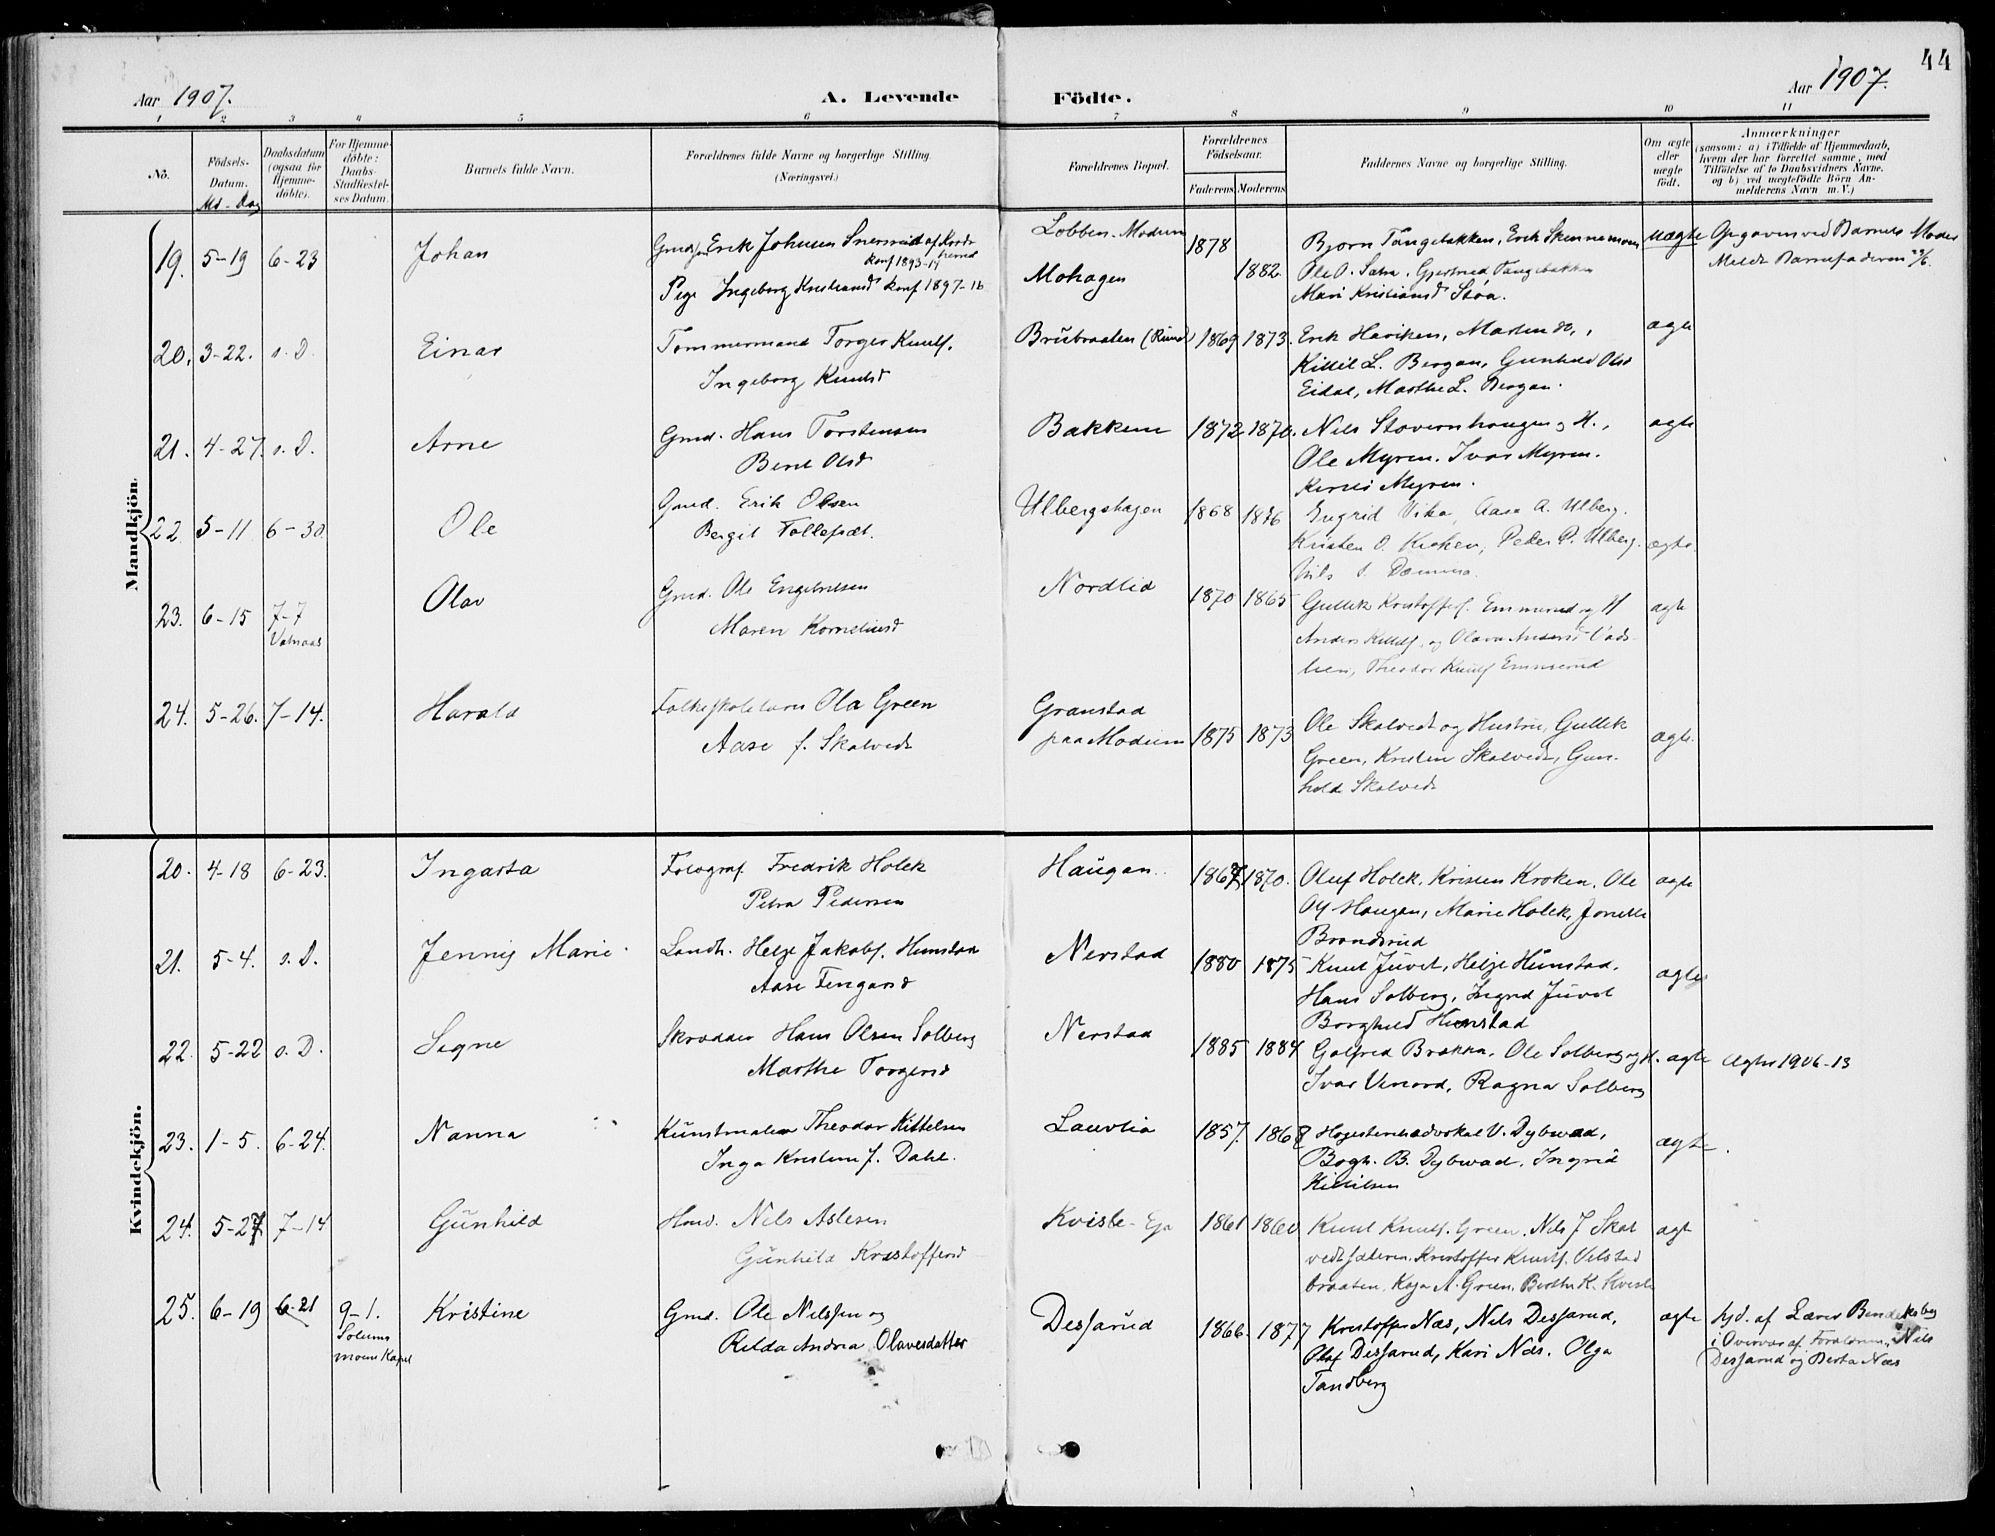 44
Aar 1907. A. Levende Födte. Aar 1907.
1 2 3 4 5 6 7 8 9 10 11
No.
Födsels-
Datum.
Md - Dag
Daabsdatum
(ogsaa for
Hjemme-
döbte).
For Hjemme-
döbte:
Daabs-
Stadfæstel-
ses Datum.
Barnets fulde Navn.
Forældrenes fulde Navne og borgerlige Stilling
(Næringsvei.)
Forældrenes Bopæl.
Forældrenes
Födselsaar.
Faderens Moderens
Faddernes Navne og borgerlige Stilling.
Om ægte
eller
uægte
født.
Anmærkninger
(saasom: a) i Tilfælde af Hjemmedaab,
hvem der har forrettet samme, med
Tilföielse af to Daabsvidners Navne.
og b) ved uægtefödte Börn An-
melderens Navn m. V.)
Mandkjön
19. 5-19 6-23 Johan
Erik Johnsen Snersrud af
konf 1893-17
Pige Ingeborg Kristiansd konf 1897-16
Lobben. Modum
Mohagen
1878
1882.
Bjørn Tangebakken, Erik Skinnemoen
Ole O. Sætra. Gjertrud Tangebakken
Mari Kristiansd Støa.
uægte
Opgaven ved Barnets Moder
Meldt Barnefaderen
20. 3-22. s. D. Einar
Tømmermand Torger Knutf.
Ingeborg Knutsd
Brubraaten (Rund) 1869 1873.
Erik Haviken, Marten do,
Kittil L. Bergan, Gunhild Olsd
Eidal, Marthe L. Bergan.
ægte
21. 4-27. s. D. Arne
Gmd. Hans Torstensen
Berit Olsd
Bakken 1872 1870.
Nils Stovernhaugen og H.,
Ole Myren. Ivar Myren.
Myren.
ægte
22 5-11 6-30 Ole
Gmd. Erik Olsen
Bergit Tollefsdt.
Ulbergshagen 1868 1876
Ingrid Vika, Aasa A. Ulberg.
Kristen O. Kroken, Peder P. Ulberg.
Nils
ægte.
23. 6-15 7-7 Olav
Gmd. Ole Engebretsen
Maren Korneliusd
Nordlid 1870 1865
Gullik Kristoffersf. Emmerud og H
Anders Kittilf. og Olava Andersd Vads-
lien, Theodor Knutf Emmerud
ægte
24. 5-26. 7-14. Harald
Folkeskolelærer Ola Green
Aase f. Skalvedt
Granstad
paa Modum 1875 1873
Ole Skalvedt og Hustru, Gullik
Green, Kristen Skalvedt, Gun-
hild Skalvedt
ægte.
Kvindekjön.
20. 4-18 6-23. Ingarta
Fotograf Fredrik Holck
Petra Pedersen
Haugan. 1867 1870.
Oluf Holck, Kristen Kroken, Ole
Olf Haugan, Marie Holck, Jonette
Brandsrud
ægte
21. 5-4. s. D. Jenny Marie.
Landh. Helge Jakobf. Hunstad
Aase Tengarsd
Nerstad 1880 1875
Knut Juvet, Helge Hunstad.
Hans Solberg, Ingrid Juvet
Borghild Hunstad
ægte
22. 5-22 s. D. Signe
Skrædder Hans Olsen Solberg
Marthe Torgersd
Nerstad 1885 1884
Golfred Brakka, Ole Solberg og H.
Ivar Vinord, Ragna Solberg
ægte
Ægtev 1906-13
23. 1-5. 6-24. Nanna
Kunstmaler Theodor Kittelsen
Inga Kristine f. Dahl.
Lauvlia 1857. 1868
Høiesteretsadvokat V. Dybwad,
Bogh. B. Dybwad, Ingrid
Kittilsen
ægte.
24. 5-27 7-14 Gunhild
Hmd. Nils Aslesen
Gunhild Kristoffersd
Kvisle-Eje 1861 1860
Knut Knutf. Green. Nils J Skal
vedtsæteren. Kristoffer Knutf. Velstad
braaten, Kaja A. Green, Berthe K. Kvisle
ægt
25. 6-19 6-21 9-1. Kristine
Gmd. Ole Nilssen og
Rilda Andrea Olavesdatter
Desserud 1866. 1877
Kristoffer Næs, Nils Desserud,
Olaf Desserud, Kari Næs. Olga
Tandberg
ægte
hjd. af Lærer
i Overvær af Forældrene, Nils
Desserud og Berta Næs